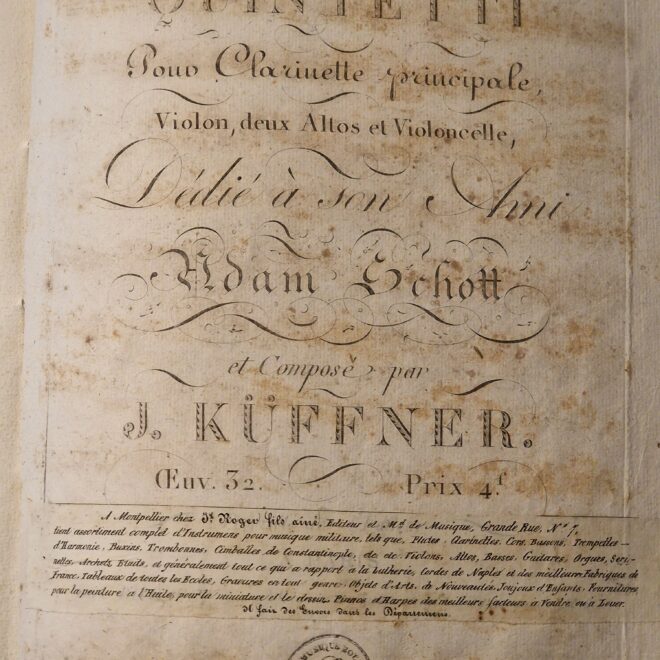 QUINTETTI
Pour Clarinette principale,
Violon, deux Altos et Violoncelle,
Dédié à son Ami
Adam Schott
et Composé par
J. KÜFFNER.
Œuv. 32. Prix 4.f
A Montpellier chez Jh. Roger fils ainé, Editeur et Md. de Musique, Grande Rue, No. 7,
tient assortiment complet d'Instrumens pour musique militaire, tels que, Flutes, Clarinettes, Cors, Bassons, Trompettes-
d'Harmonie, Buxens, Trombonnes, Cimballes de Constantinople, etc. etc. Violons, Altos, Basses, Guitares, Orgues, Seri-
nettes, Archets, Etuits, et généralement tout ce qui a rapport à la Lutherie, Cordes de Naples et des meilleurs Fabriques de
France, Tableaux de toutes les Ecoles, Gravures en tout genre, Objets d'Arts, de Nouveautés, Joujoux d'Enfants, Fournitures
pour la peinture a l'Huile, pour la miniature et le dessin, Pianos d'Harpes des meilleurs facteurs à Vendre ou à Louer.
Il fait des Envois dans les Départemens.